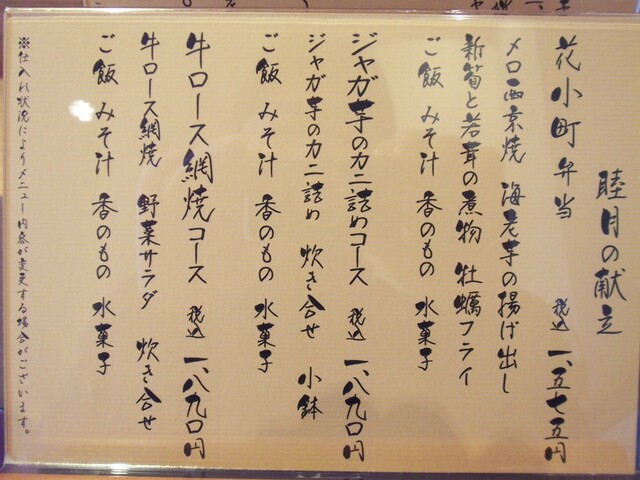 睦月の献立
花小町弁当 税込 一、五七五円
メロ西京焼 海老芋の揚げ出し
新筍と若茸の煮物 牡蠣フライ
ご飯 みそ汁 香のもの 水菓子
ジャガ芋のカニ詰めコース 税込 一、八九〇円
ジャガ芋のカニ詰め 炊き合せ 小鉢
ご飯 みそ汁 香のもの 水菓子
牛ロース網焼コース 税込 一、八九〇円
牛ロース網焼 野菜サラダ 炊き合せ
ご飯 みそ汁 香のもの 水菓子
※仕入れ状況によりメニュー内容が変更する場合がございます。